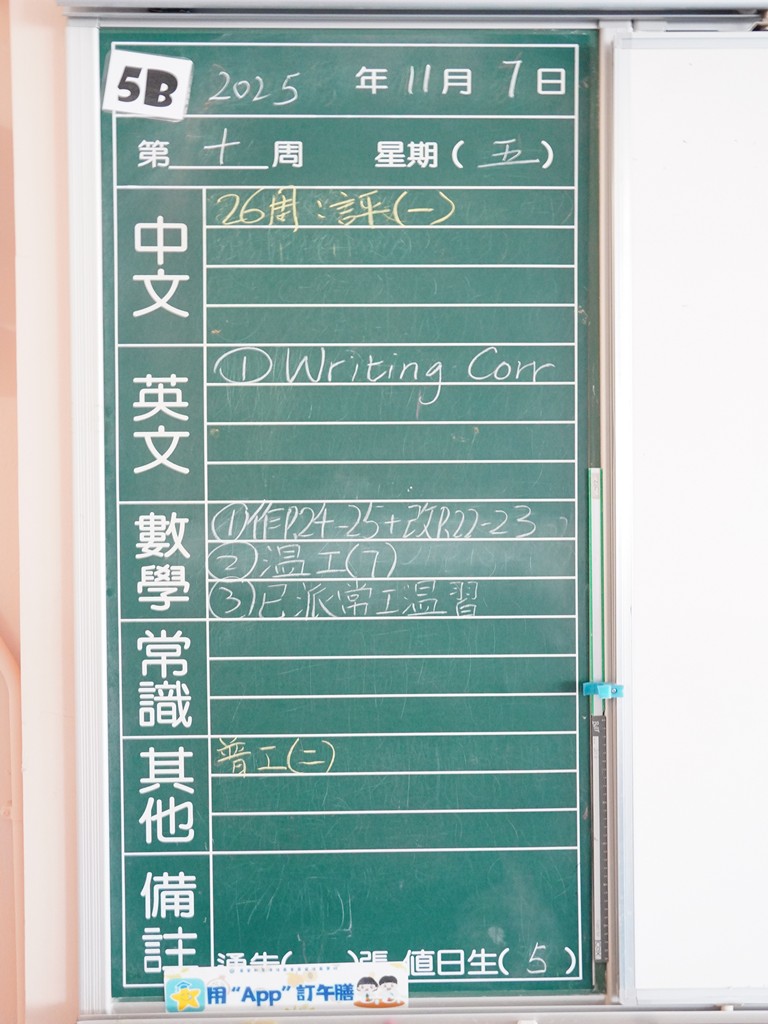 5B 2025 年 11 月 7 日
第 十 周 星期 ( 五 )
中文
26周:評(一)
英文
① Writing Corr
數學
①作P.24-25+改P.22-23
②温工(7)
③已派常工温習
常識
其他
普工(二)
備註
通告( )張 值日生( 5 )
用 “App” 訂午膳